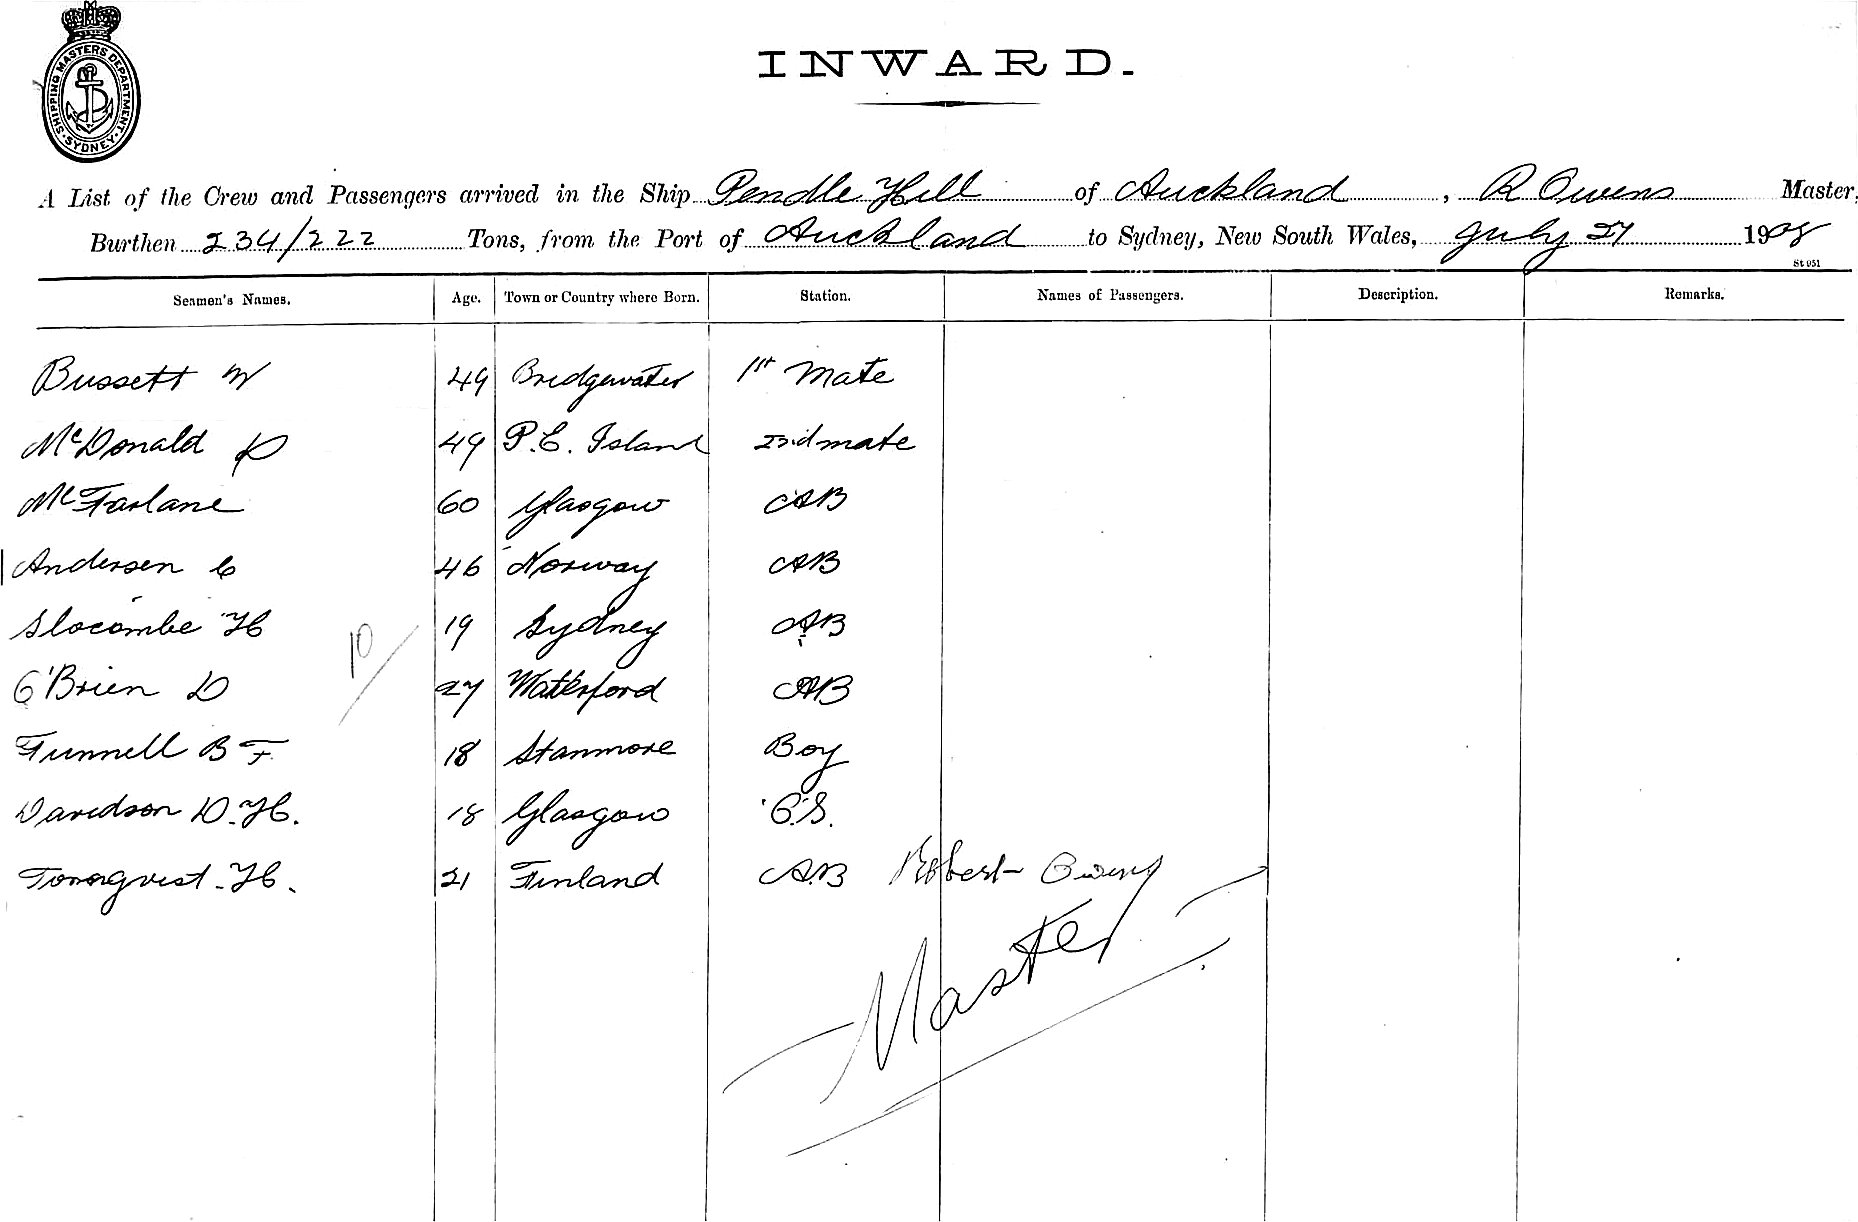 SHIPPING MASTERS DEPARTMENT · SYDNEY ·
INWARD.
A List of the Crew and Passengers arrived in the Ship Pendle Hill of Auckland, R Owens Master,
Burthen 234/222 Tons, from the Port of Auckland to Sydney, New South Wales, July 27 1908
St 951
Seamen's Names. Age. Town or Country where Born. Station. Names of Passengers. Description. Remarks.
Bussett W 49 Bridgewater 1st Mate
McDonald D 49 P.E. Island 2nd mate
McFarlane 60 Glasgow AB
Andersen C 46 Norway AB
Slocombe H 19 Sydney AB
10/
O'Brien D 27 Waterford AB
Funnell B F 18 Stanmore Boy
Davidson D.H. 18 Glasgow O.S.
Tornqvist H. 21 Finland AB Robert Owens
Master